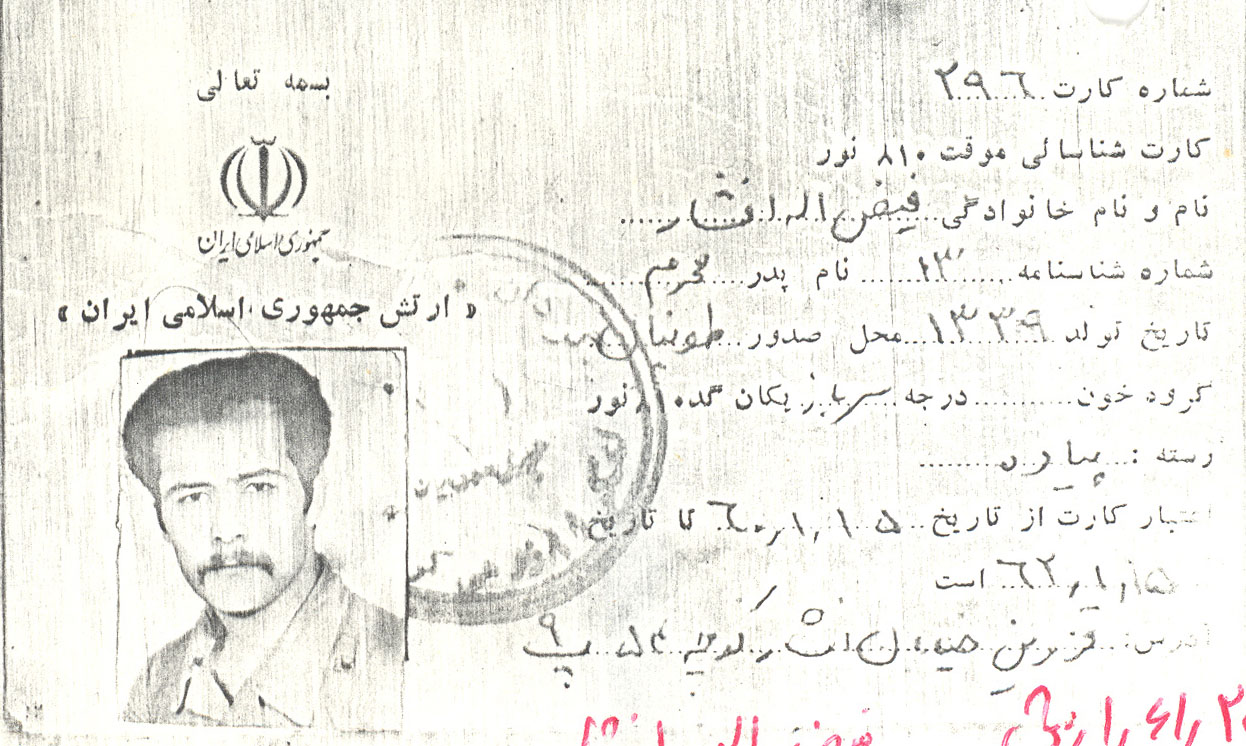 بسمه تعالی
جمهوری اسلامی ایران
« ارتش جمهوری اسلامی ایران »
شماره کارت ۲۹۶
کارت شناسائی موقت ۸۱۰ نور
نام و نام خانوادگی فیض اله افشار
شماره شناسنامه ۱۳ نام پدر محرم
تاریخ تولد ۱۳۳۹ محل صدور
گروه خون درجه سرباز یکان گد ۸۱۰ نور
رسته : پیاده
اعتبار کارت از تاریخ ۶۰٫۱٫۱۵ تا تاریخ
۶۲٫۱٫۱۵ است
آدرس: قزوین خیابان کوچه پ ۹
فیض اله افشار